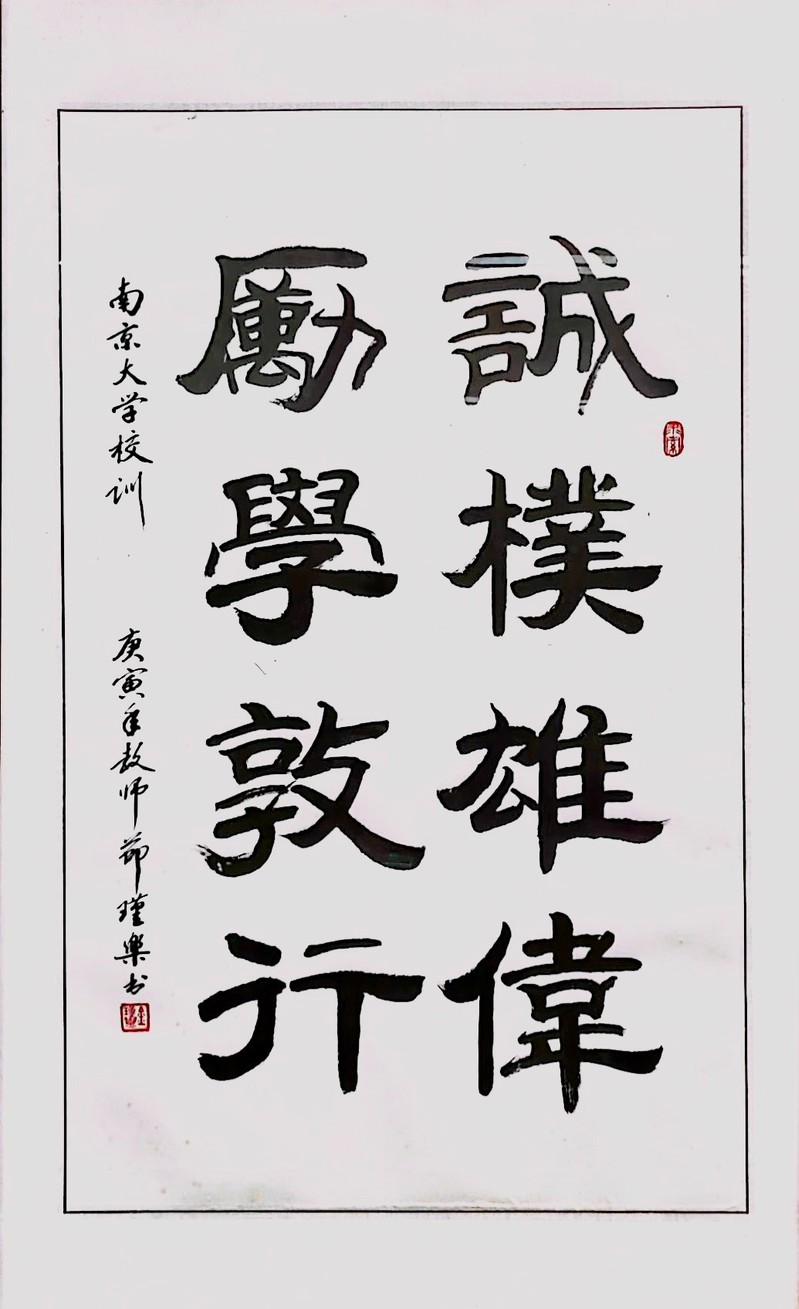 誠樸雄偉
勵學敦行
南京大学校训
庚寅年教师节瑾樂书